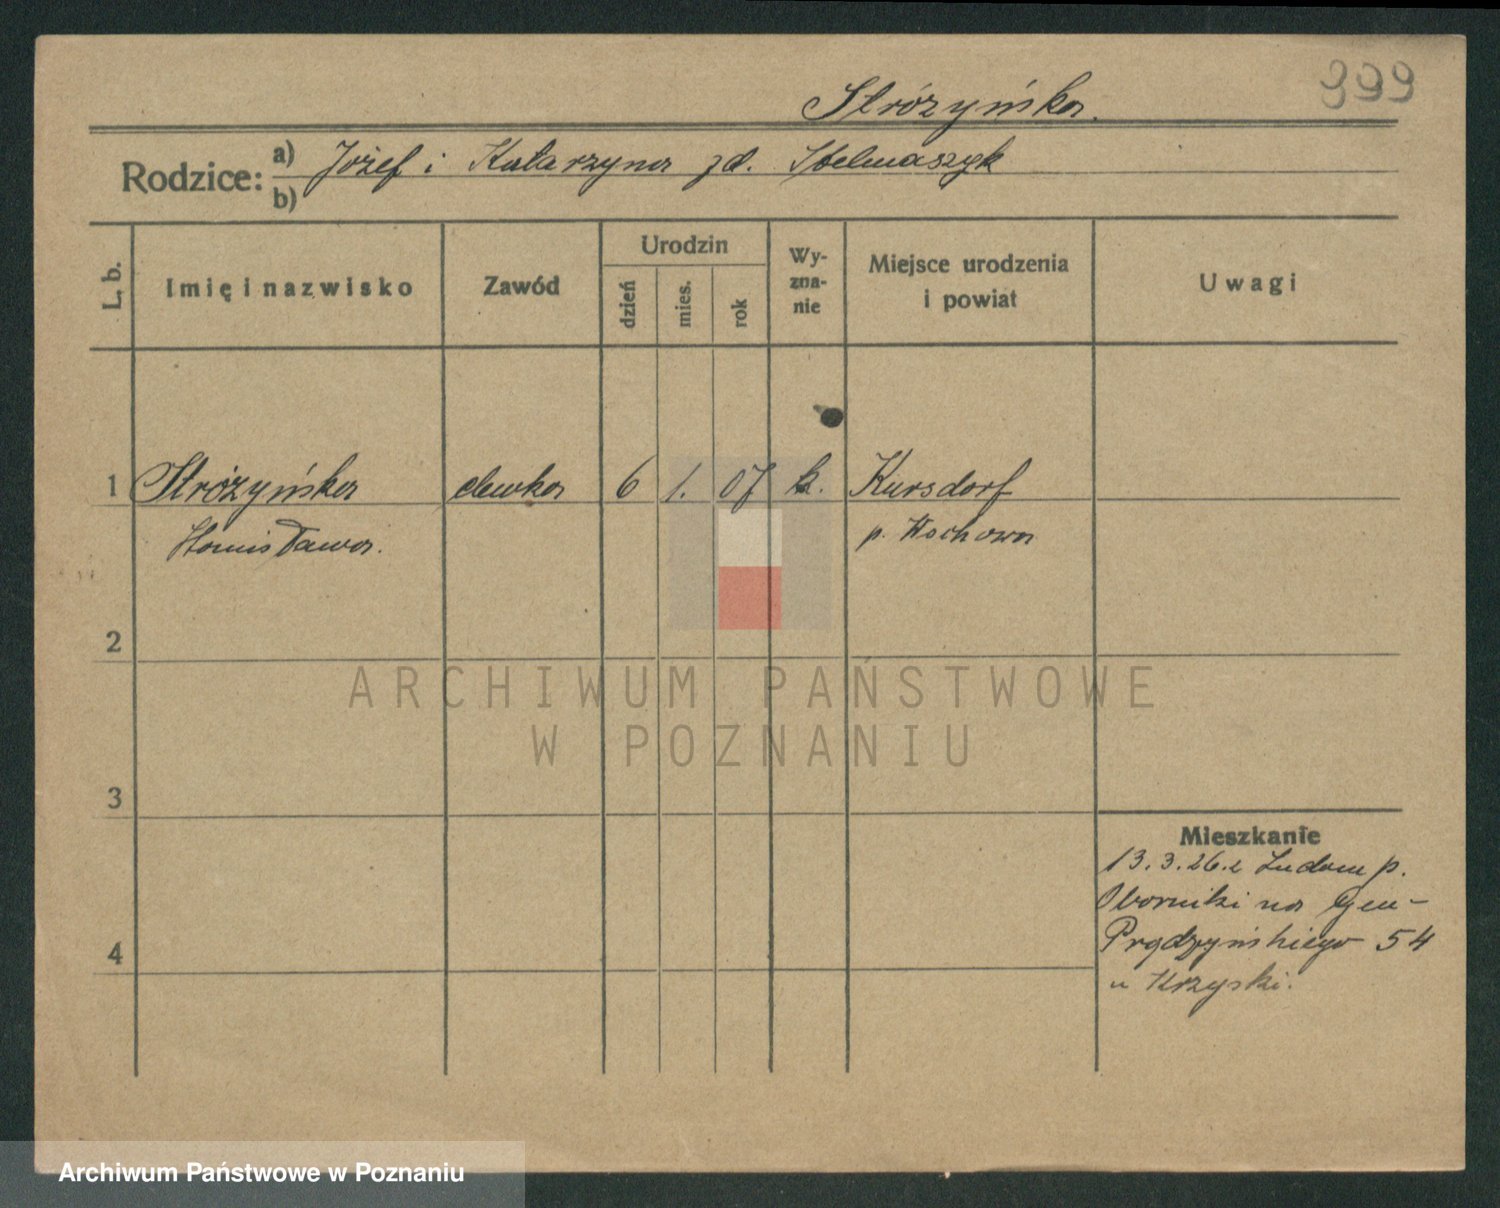 999
Stróżyńska.
Rodzice: a) Józef i Katarzyna zd. Stelmaszyk
b)
L. b. Imię i nazwisko Zawód Urodzin dzień mies. rok Wy-zna-nie Miejsce urodzenia i powiat Uwagi
1 Stróżyńska 6 1. 07 k. Kursdorf
Stanisława. p. Wschowa
2
3
Mieszkanie
13.3.26. z Ludom p.
Oborniki na Gen-
4 Prądzyńskiego 54
u Krzyski.
ARCHIWUM PAŃSTWOWE
W POZNANIU
Archiwum Państwowe w Poznaniu